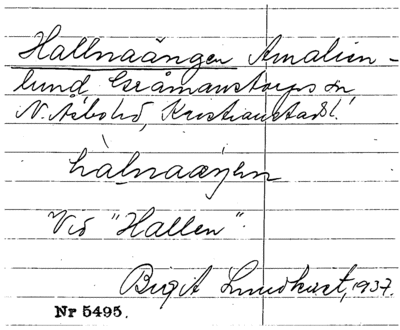 Hallnaängen Amalien-
lund Gråmanstorps sn
N. Åsbohd, Kristianstadsl.
hàlnaäŋen
Vid "Hallen".
Birgit Lundkvist, 1937.
Nr 5495.